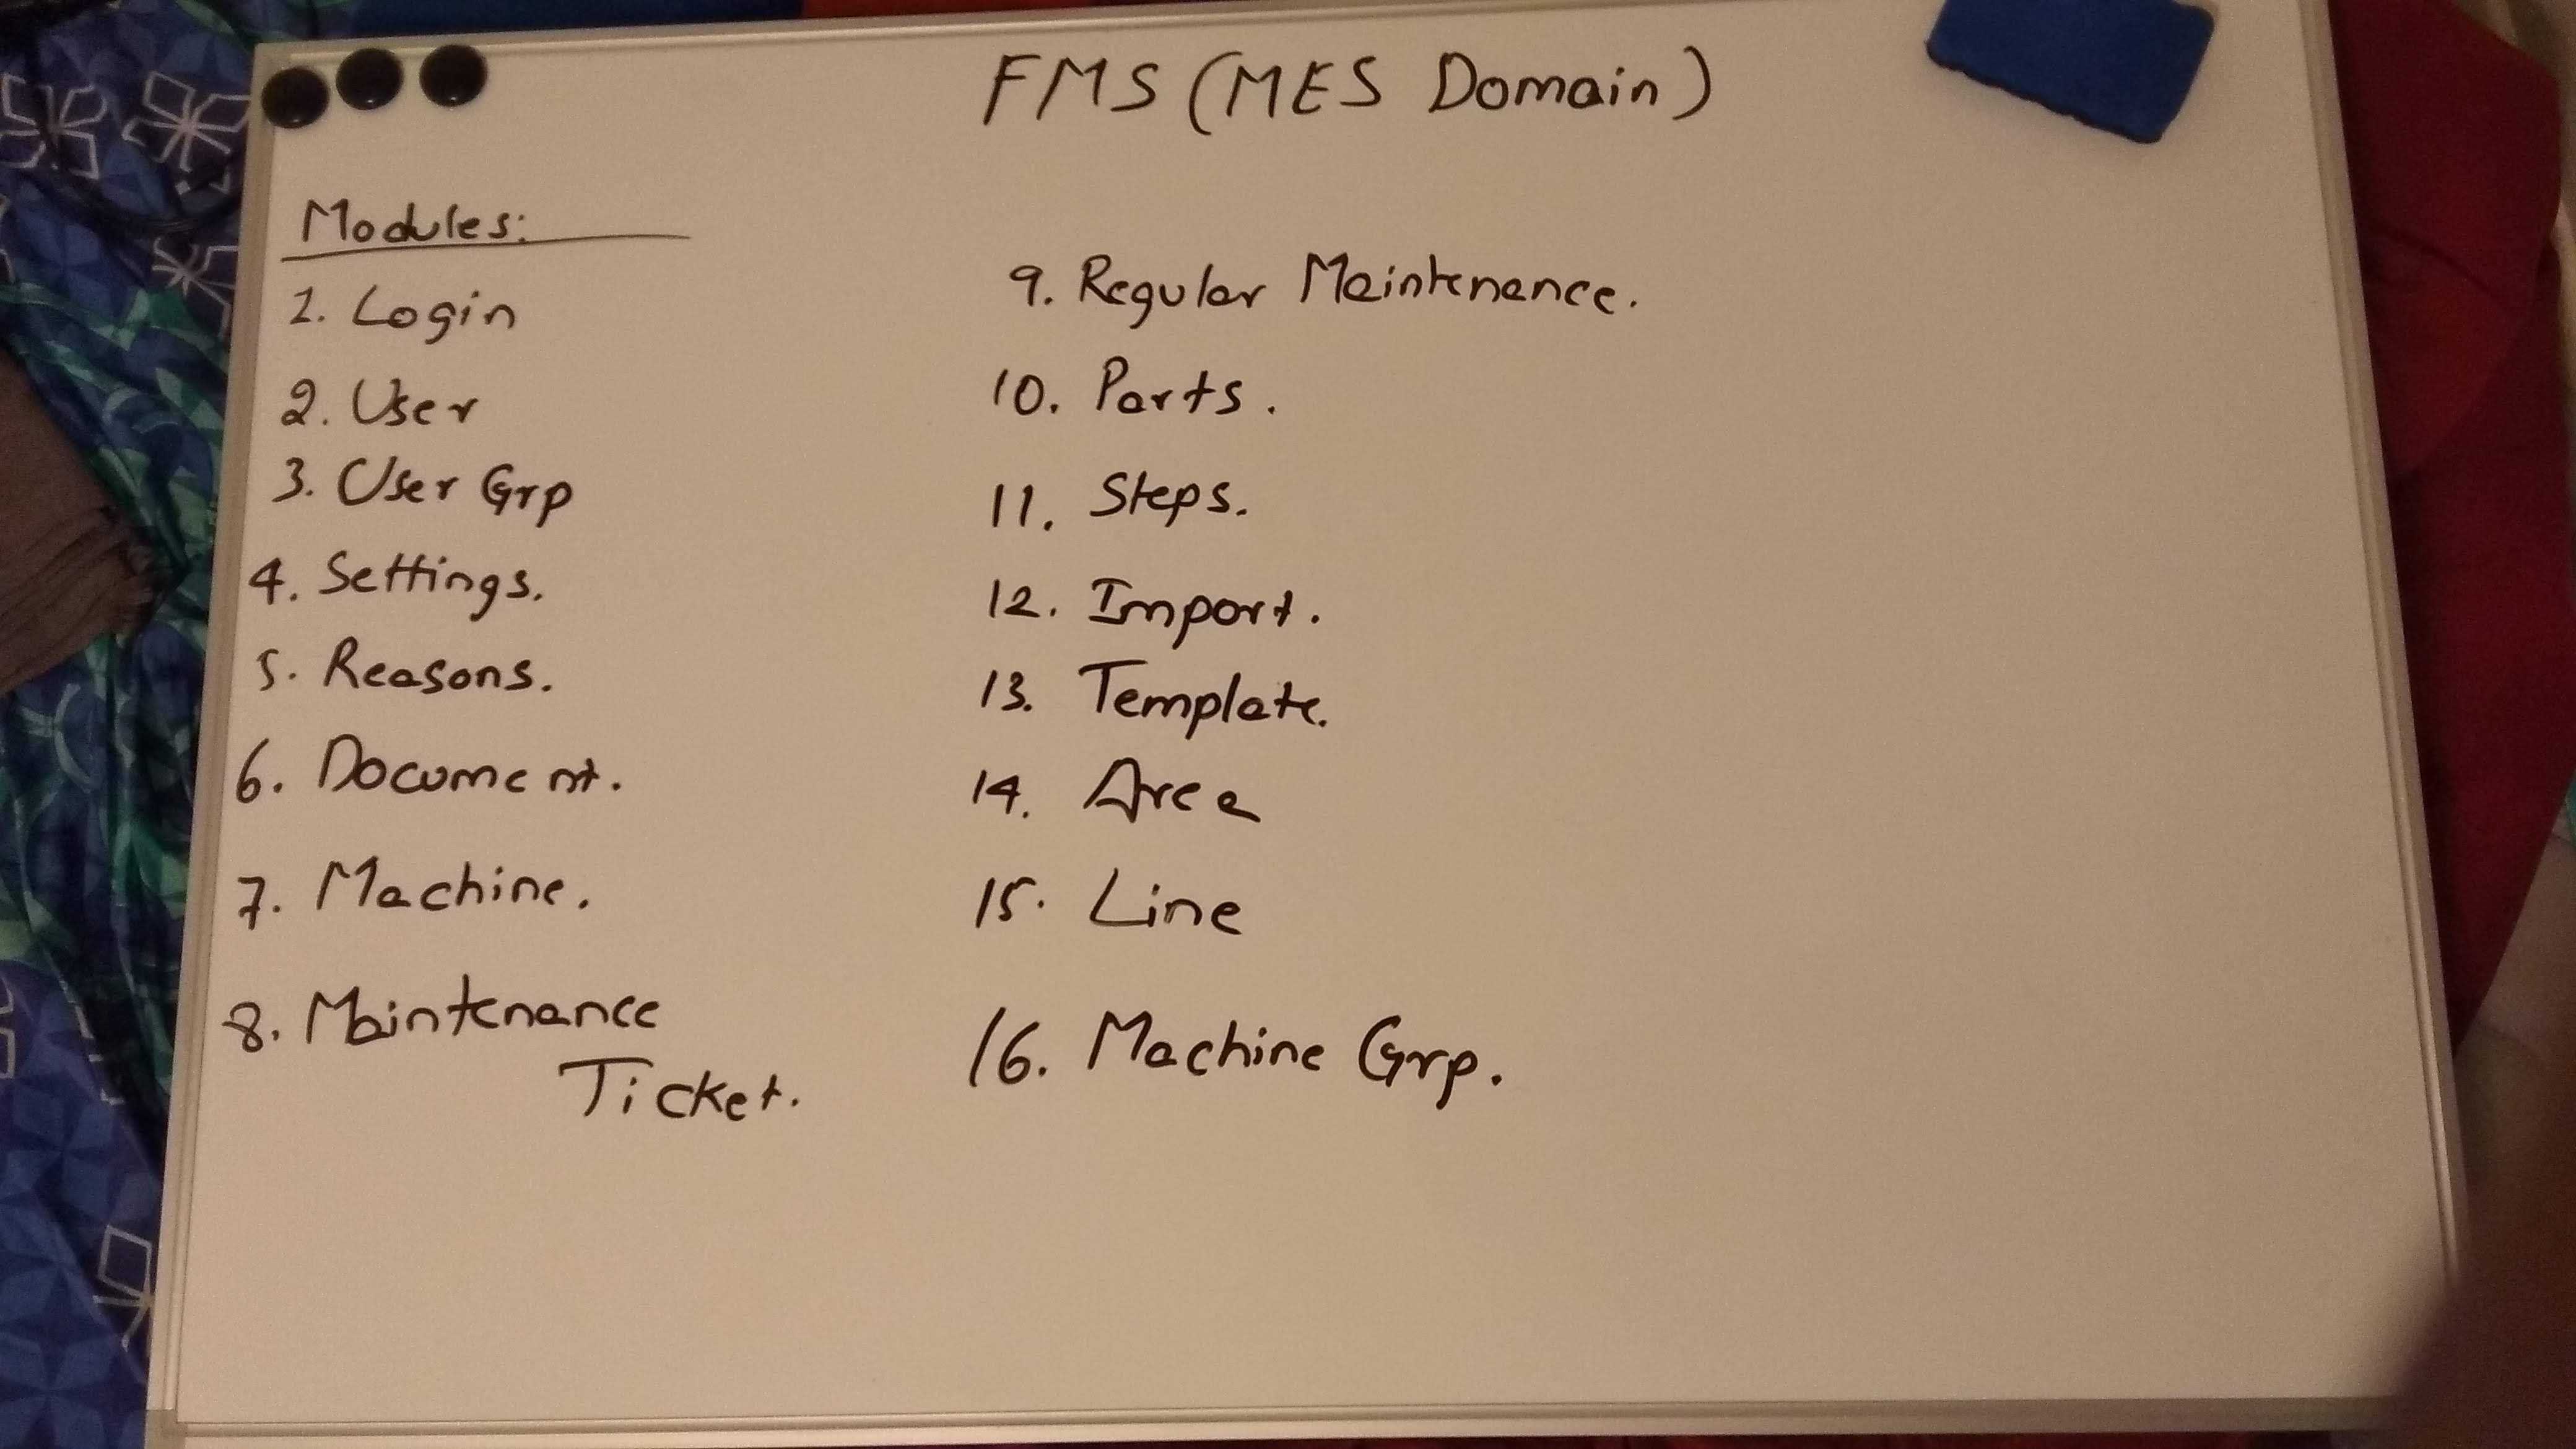 FMS (MES Domain)
Modules:
1. Login
2. User
3. User Grp
4. Settings.
5. Reasons.
6. Document.
7. Machine.
8. Maintenance
Ticket.
9. Regular Maintenance.
10. Parts.
11. Steps.
12. Import.
13. Template.
14. Area
15. Line
16. Machine Grp.